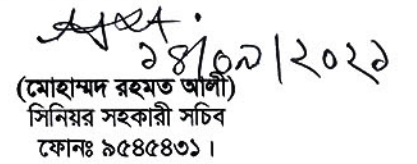 ১৪/০৯/২০২১
(মোহাম্মদ রহমত আলী)
সিনিয়র সহকারী সচিব
ফোনঃ ৯৫৪৫৪৩১।